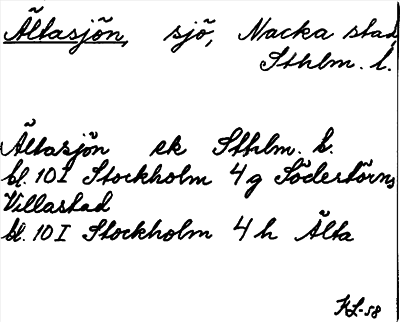 Ältasjön, sjö, Nacka stad,
Sthlm. l.
Ältasjön ek Sthlm. k.
bl. 10 I Stockholm 4 g Södertörns
Villastad
bl. 10 I Stockholm 4 h Älta
KL-58